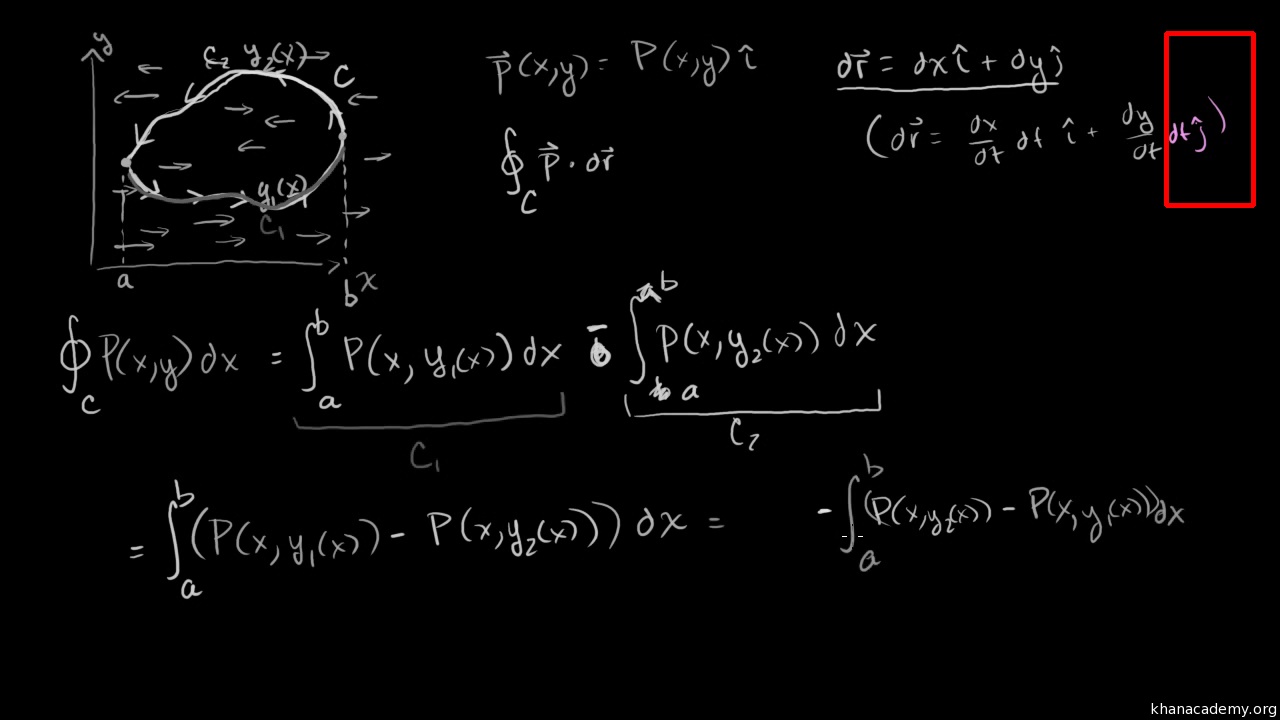 y
C₂ y₂(x)
C
y₁(x)
C₁
a
b
x
P⃗(x,y) = P(x,y) î
∮_C P⃗ · dr⃗
dr⃗ = dx î + dy ĵ
(dr⃗ = dx/dt dt î + dy/dt dt ĵ)
∮_C P(x,y) dx = ∫_a^b P(x, y₁(x)) dx - ∫_a^b P(x, y₂(x)) dx
C₁ C₂
= ∫_a^b (P(x, y₁(x)) - P(x, y₂(x))) dx = - ∫_a^b (P(x, y₂(x)) - P(x, y₁(x))) dx
khanacademy.org